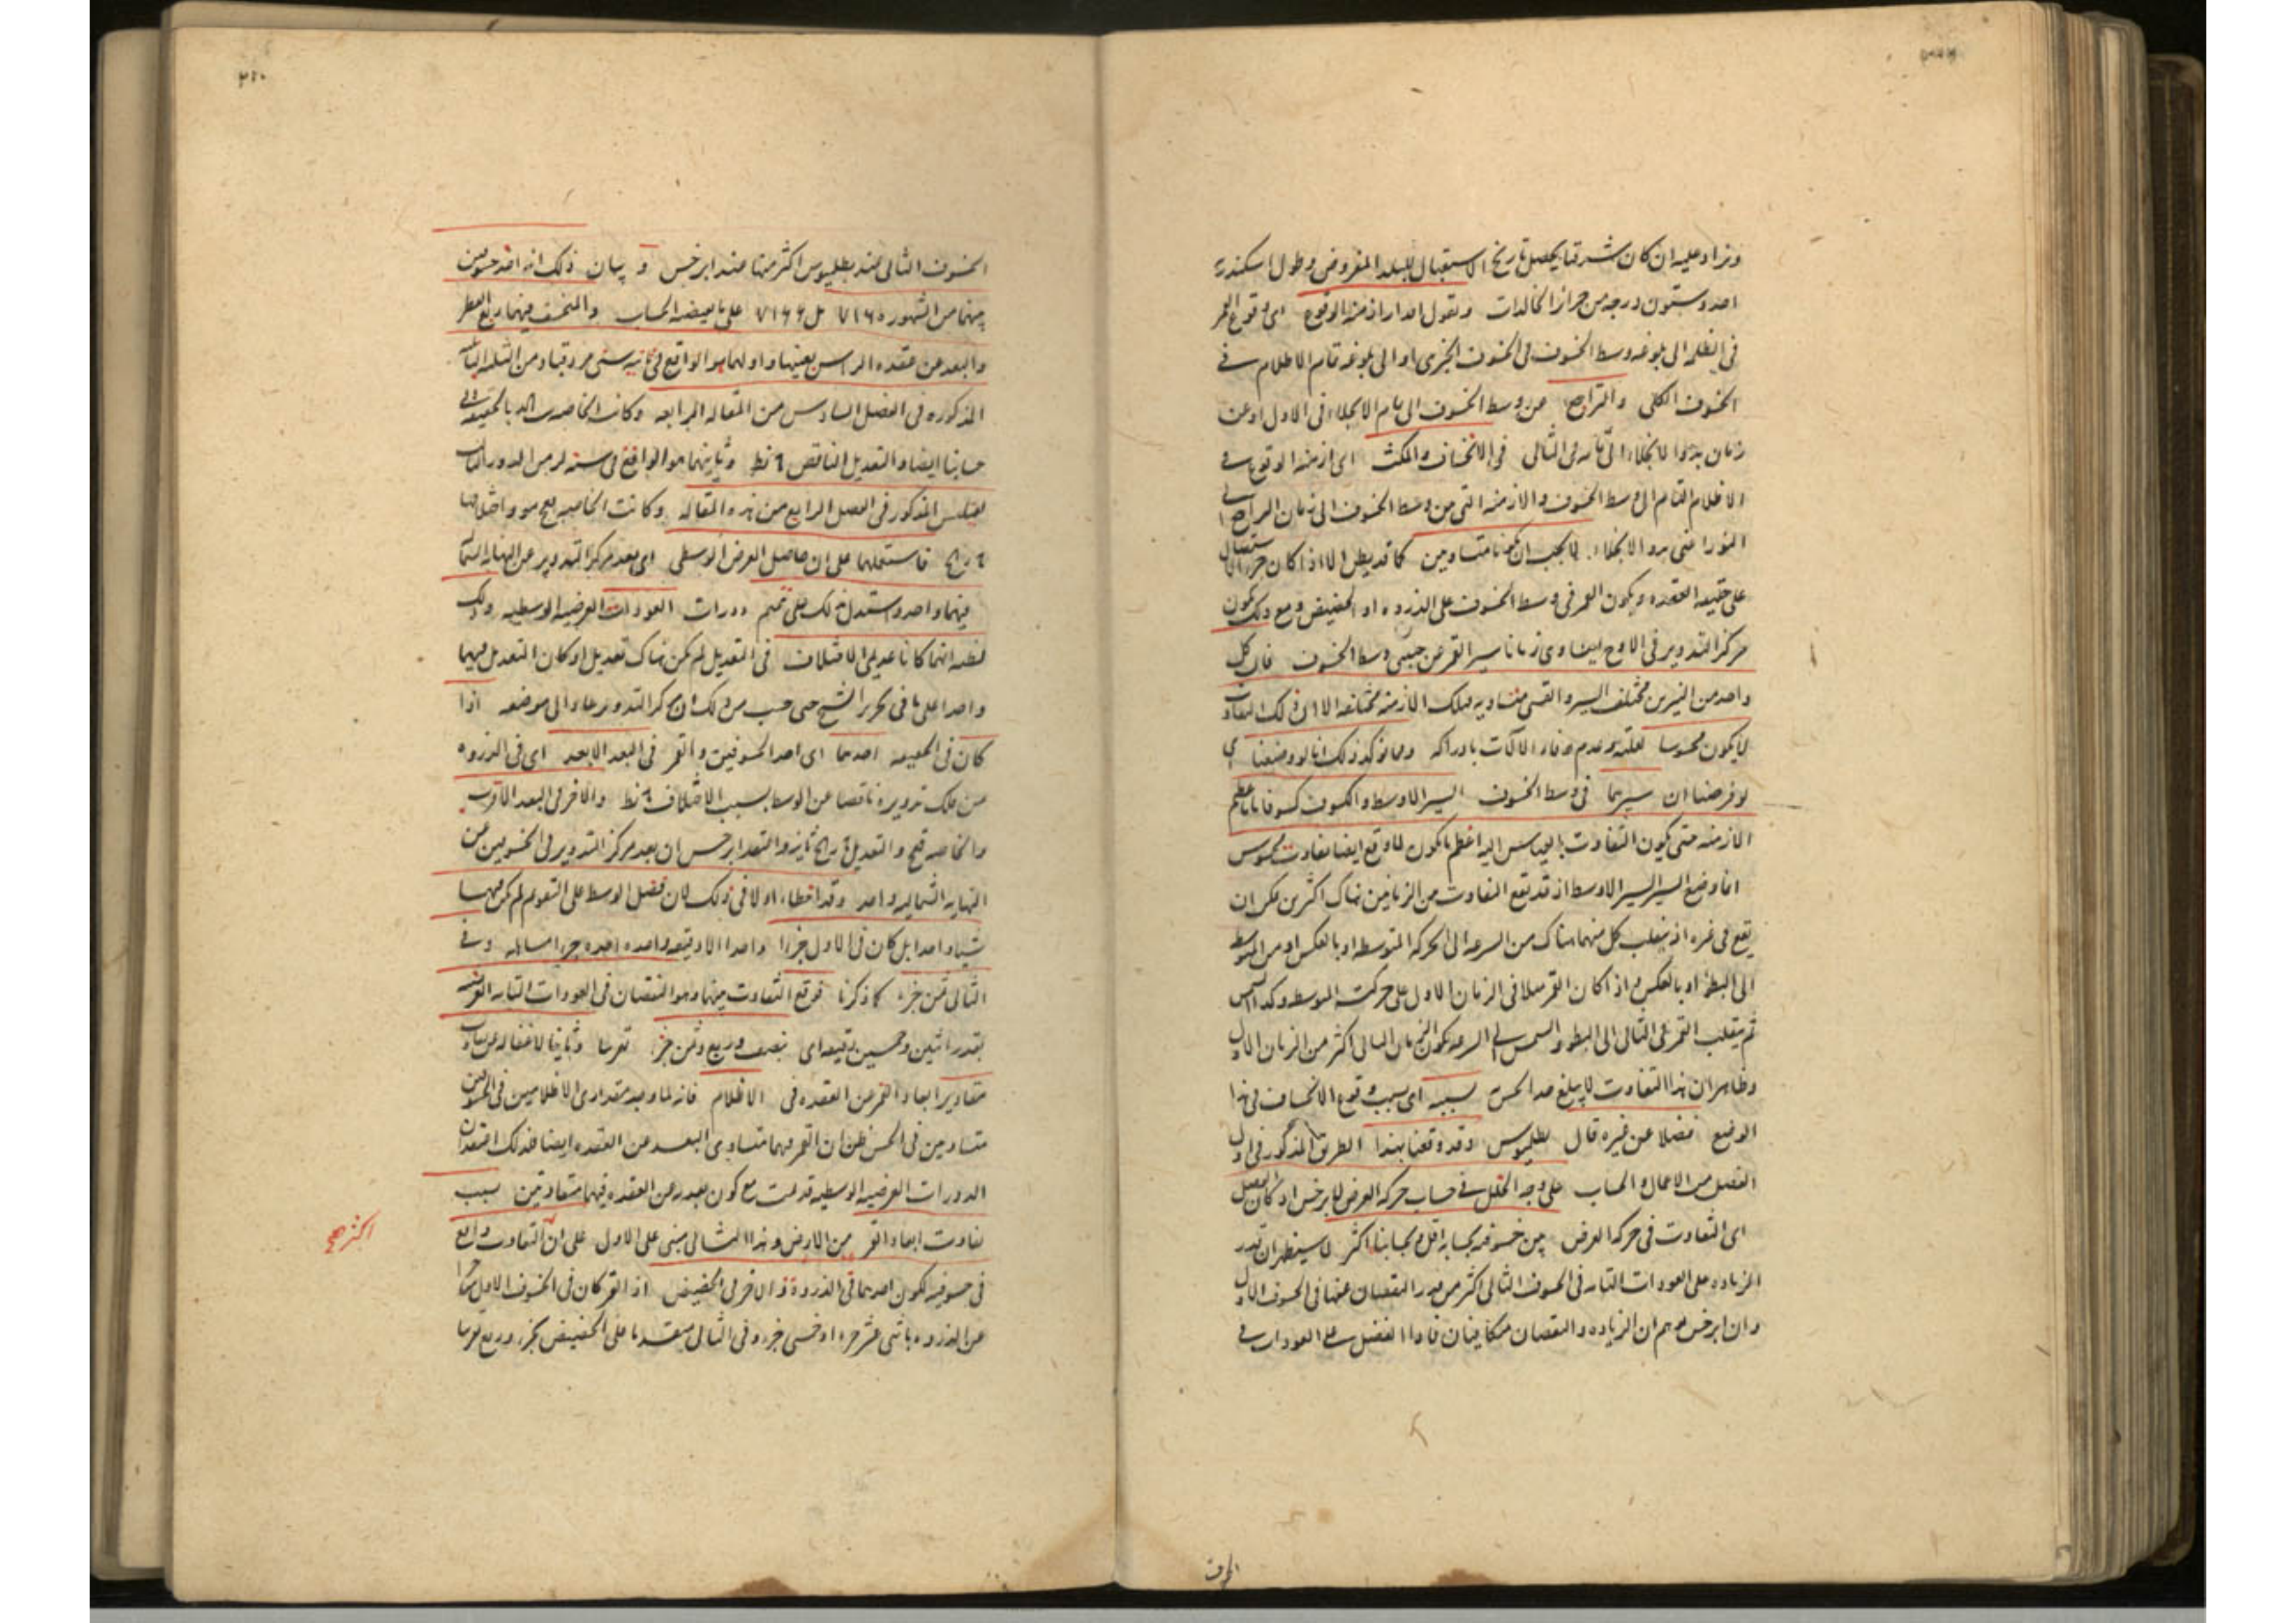 ويزاد عليه ان كان شرقيا يحصل تاريخ الاستقبال للبلد المفروض وطول اسكندرية
احد وستون درجه من جزائر الخالدات ونقول امدارا ازمنه الوقوع اى وقوع القمر
فى الظلمه الى بلوغه وسط الخسوف فى الخسوف الجزى او الى بلوغه تمام الاظلام فى
الخسوف الكلى والتراجع من وسط الخسوف الى تمام الانجلاء فى الاول او من
زمان بدوا الانجلاء الى تمامه فى الثانى فى الانخساف والمكث اى ازمنه الوقوع فى
الاظلام التام الى وسط الخسوف والازمنه التى من وسط الخسوف الى زمان التراجع
النور اعنى بدو الانجلاء لا يجب ان تكونا متساويين كما قد يظن الا اذا كان جزء الاستقبال
على حقيقه العقده ويكون القمر فى وسط الخسوف على الذروه او الحضيض ومع ذلك يكون
مركز التدوير فى الاوج ليتساوى زمانا سير القمر عن جنبى وسط الخسوف فان كل
واحد من النيرين مختلف السير والقسى متساويه فتلك الازمنه مختلفه الا ان ذلك التفاوت
لا يكون محسوسا لقلته وعدم وفاء الآلات بادراكه ومما يوكد ذلك انا لو وضعنا اى
لو فرضنا ان سيرهما فى وسط الخسوف السير الاوسط والكسوف كسوفا تاما اعظم
الازمنه حتى يكون التفاوت بالقياس اليه اعظم ما يكون لما وقع ايضا تفاوت محسوس
انما وضع السير السير الاوسط اذ قد يقع التفاوت من الزمانين هناك اكثر من ان
يقع فى غيره اذ ينقلب كل منهما هناك من السرعه الى الحركه المتوسطه او بالعكس او من المتوسط
الى البطو او بالعكس و اذا كان القمر مثلا فى الزمان الاول على حركته الوسط وكذا الشمس
ثم ينقلب القمر فى الثانى الى البطو والشمس الى السرعه يكون الزمان الثانى اكثر من الزمان الاول
وظاهر ان هذا التفاوت لا يبلغ حد الحس بسببه اى بسبب وقوع الانخساف فى هذا
الوضع فضلا عن غيره قال بطلميوس وقد وقفنا بهذا الطريق المذكور فى اول
الفصل من الاعمال والحساب على وجه الخلل فى حساب حركه العرض لابرخس اذ كان الفضل
اى التفاوت فى حركه العرض بين خسوفيه بحسابه اقل وبحسابنا اكثر لما سيظهر ان قدر
الزياده على العودات التامه فى الخسوف الثانى اكثر من قدر النقصان عنها فى الخسوف الاول
وان ابرخس توهم ان الزياده والنقصان متكافيان فاذا الفضل على العودات فى
الخسوف
٣١٠
الخسوف الثانى عند بطلميوس اكثر منها عند ابرخس وبيان ذلك انه اخذ خسوفين
بينهما من الشهور ٧١٦٠ على ما يعيضه الحساب والمنخسف فيهما ربع القطر
والبعد عن عقده الراس بعينها و اولهما هو الواقع فى ثانيه سنى مردقنباد من الثلثه البابليه
المذكوره فى الفصل السادس من المقاله الرابعه وكانت الخاصه بالحقيقه فى
حسابنا ايضا والتعديل الناقص نط وثانيهما هو الواقع فى سنه لز من الدور الثالث
لقيلبس المذكور فى الفصل الرابع من هذه المقاله وكانت الخاصه واختلافها
فاستعملهما على ان حاصل العرض الوسطى اى بعد مركز التدوير عن النهايه الشماليه
فيهما واحد واستدل بذلك على تتميم دورات العودات العرضيه الوسطيه وذلك
لظنه انهما كانا عديمى الاختلاف فى التعديل لم يكن هناك تعديل او كان التعديل فيهما
واحدا على ما فى تحرير الشيخ حتى حسب من ذلك ان مركز التدوير عاد الى موضعه اذا
كان فى الحقيقه احدهما اى احد الخسوفين والقمر فى البعد الابعد اى فى الذروه
من فلك تدويره ناقصا عن الوسط بسبب الاختلاف نط والاخر فى البعد الاقرب
والخاصه قيح والتعديل زائد واعتقد ابرخس ان بعد مركز التدوير فى الخسوفين عن
النهايه الشماليه واحد وقد اخطا، اولا فى ذلك لان فضل الوسط على التقويم لم يكن فيهما
شيا واحدا بل كان فى الاول جزءا واحدا الا دقيقه واحده وفى
الثانى ثمن جزء كما ذكرنا فوقع التفاوت بينهما وهو النقصان فى العودات التامه العرضيه
بقدر اثنين وخمسين دقيقه اى بنصف وربع وثمن جزء تقريبا وثانيا لاغفاله عن تفاوت
مقادير ابعاد القمر من العقده فى الاظلام فانه لما وجد مقدارى الاظلامين فى الخسوفين
متساويين فى الحس ظن ان القمر فيهما متساوى البعد عن العقده ايضا فلذلك اعتقد ان
الدورات العرضيه الوسطيه قد تمت مع كون بعديه عن العقده فيهما متفاوتين بسبب
تفاوت ابعاد القمر من الارض وهذا الثانى مبنى على الاول على ان التفاوت واقع
اكثر صح
فى خسوفيه لكون احدهما فى الذروة والاخر فى الحضيض اذ القمر كان فى الخسوف الاول متاخرا
عن الذروه باثنى عشر جزءا وخمسى جزء وفى الثانى متقدما على الحضيض بجزء وربع تقريبا